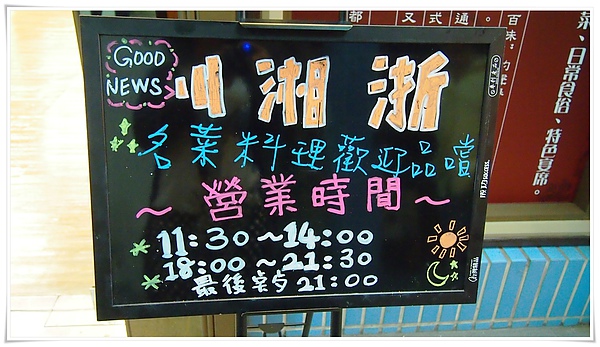 GOOD
NEWS
川湘浙
名菜料理歡迎品嚐
～營業時間～
11:30～14:00
18:00～21:30
最後客夕21:00
百味：
又式通。
都
菜、日常食俗、特色宴席。